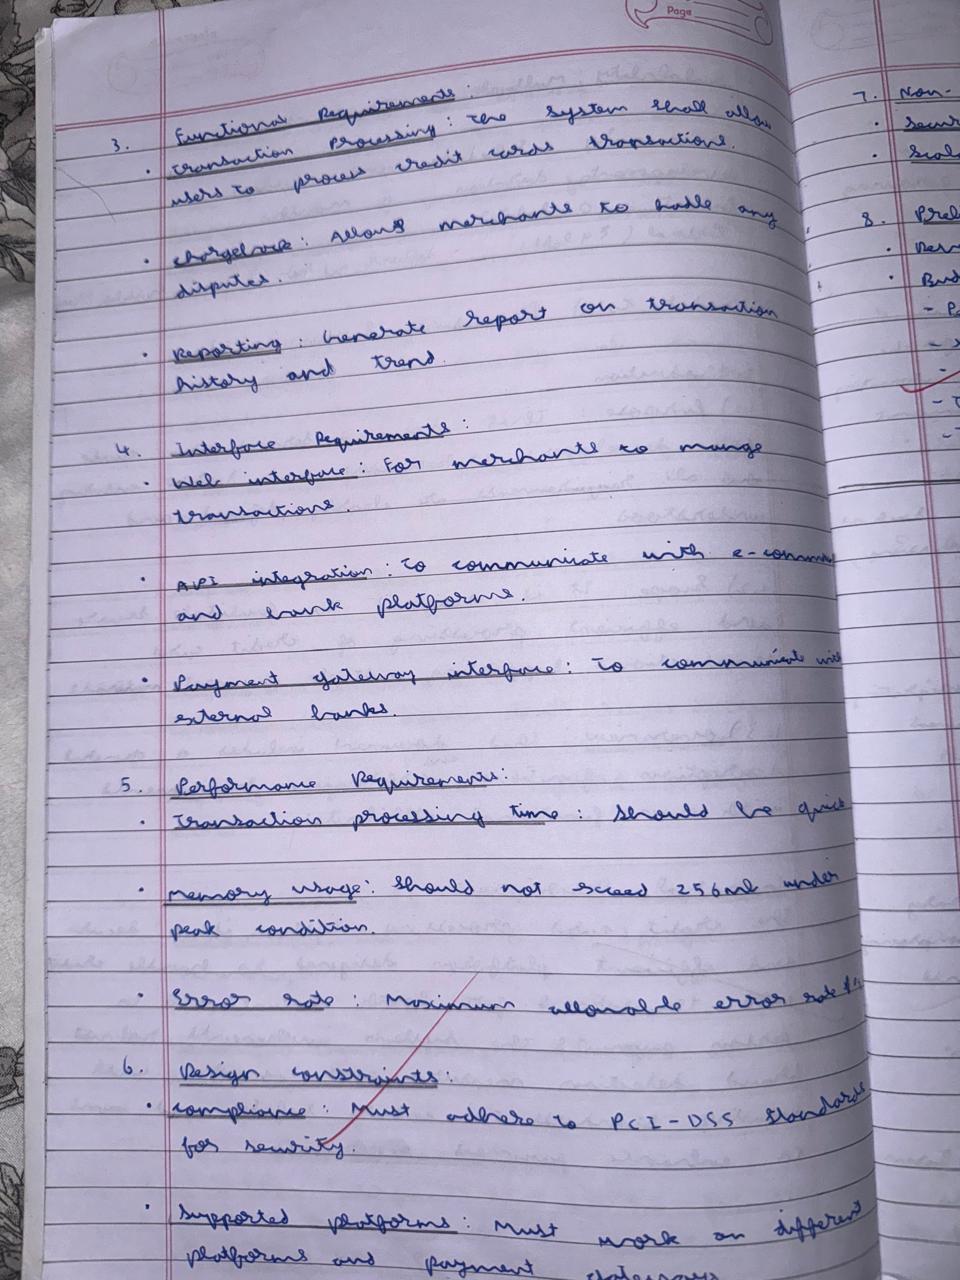 Page
3. Functional Requirements:
• Transaction Processing: The system shall allow
users to process credit cards transactions.
• Chargeback: Allows merchants to hadle any
disputes.
• Reporting: Generate report on transaction
history and trend.
4. Interface Requirements:
• Web interface: For merchants to mange
transactions.
• API integration: To communicate with
and bank platforms.
• Payment gateway interface: To communicate with
external banks.
5. Performance Requirements:
• Transaction processing time: Should be quick
• Memory usage: Should not exceed 256mb under
peak condition.
• Error rate: Maximum allowable error rate
6. Design constraints:
• compliance: Must adhere to PCI-DSS standards
for security.
• Supported platforms: Must work on different
platforms and payment gateways
7. Non-
• Secur
• Scala
8. Prel
•
• Bud